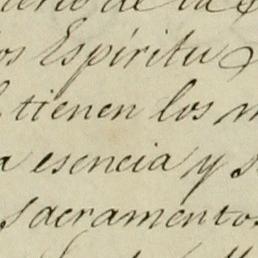 de la
os Espíritu
tienen los
a esencia y s
sacramentos